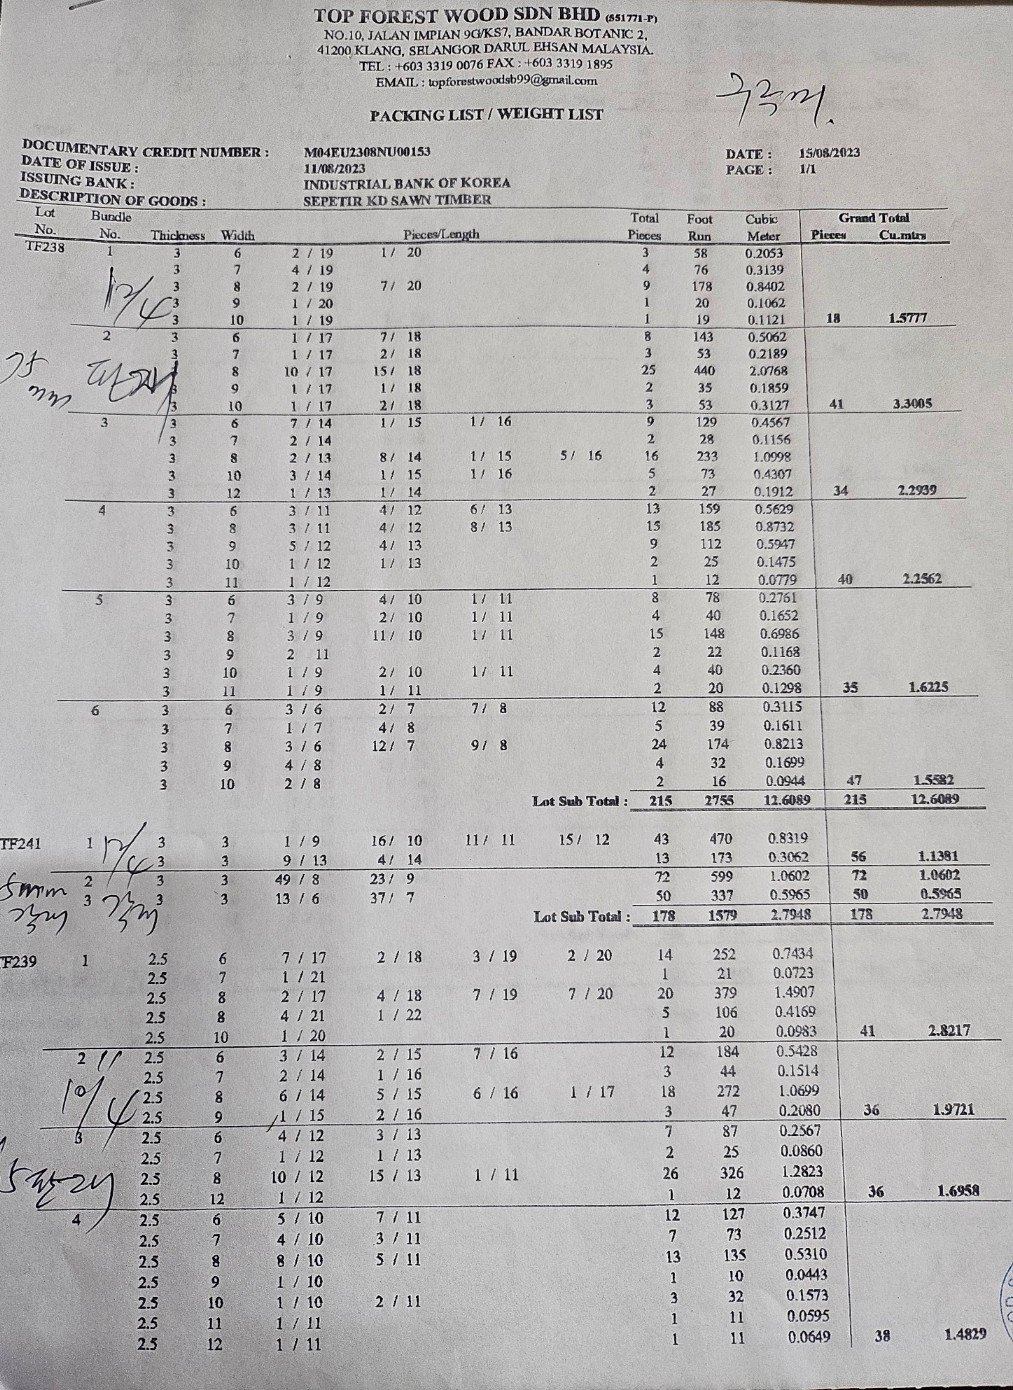 TOP FOREST WOOD SDN BHD (551771-P)
NO.10, JALAN IMPIAN 9G/KS7, BANDAR BOTANIC 2,
41200 KLANG, SELANGOR DARUL EHSAN MALAYSIA.
TEL : +603 3319 0076 FAX : +603 3319 1895
EMAIL : topforestwoodsb99@gmail.com
PACKING LIST / WEIGHT LIST
DOCUMENTARY CREDIT NUMBER : M04EU2308NU00153 DATE : 15/08/2023
DATE OF ISSUE : 11/08/2023 PAGE : 1/1
ISSUING BANK : INDUSTRIAL BANK OF KOREA
DESCRIPTION OF GOODS : SEPETIR KD SAWN TIMBER
Lot Bundle Total Foot Cubic Grand Total
No. No. Thickness Width Pieces/Length Pieces Run Meter Pieces Cu.mtrs
TF238 1 3 6 2 / 19 1 / 20 3 58 0.2053
3 7 4 / 19 4 76 0.3139
3 8 2 / 19 7 / 20 9 178 0.8402
3 9 1 / 20 1 20 0.1062
3 10 1 / 19 1 19 0.1121 18 1.5777
12/4
2 3 6 1 / 17 7 / 18 8 143 0.5062
3 7 1 / 17 2 / 18 3 53 0.2189
3 8 10 / 17 15 / 18 25 440 2.0768
3 9 1 / 17 1 / 18 2 35 0.1859
3 10 1 / 17 2 / 18 3 53 0.3127 41 3.3005
판재
3 3 6 7 / 14 1 / 15 1 / 16 9 129 0.4567
3 7 2 / 14 2 28 0.1156
3 8 2 / 13 8 / 14 1 / 15 5 / 16 16 233 1.0998
3 10 3 / 14 1 / 15 1 / 16 5 73 0.4307
3 12 1 / 13 1 / 14 2 27 0.1912 34 2.2939
4 3 6 3 / 11 4 / 12 6 / 13 13 159 0.5629
3 8 3 / 11 4 / 12 8 / 13 15 185 0.8732
3 9 5 / 12 4 / 13 9 112 0.5947
3 10 1 / 12 1 / 13 2 25 0.1475
3 11 1 / 12 1 12 0.0779 40 2.2562
5 3 6 3 / 9 4 / 10 1 / 11 8 78 0.2761
3 7 1 / 9 2 / 10 1 / 11 4 40 0.1652
3 8 3 / 9 11 / 10 1 / 11 15 148 0.6986
3 9 2 11 2 22 0.1168
3 10 1 / 9 2 / 10 1 / 11 4 40 0.2360
3 11 1 / 9 1 / 11 2 20 0.1298 35 1.6225
6 3 6 3 / 6 2 / 7 7 / 8 12 88 0.3115
3 7 1 / 7 4 / 8 5 39 0.1611
3 8 3 / 6 12 / 7 9 / 8 24 174 0.8213
3 9 4 / 8 4 32 0.1699
3 10 2 / 8 2 16 0.0944 47 1.5582
Lot Sub Total : 215 2755 12.6089 215 12.6089
TF241 1 3 3 1 / 9 16 / 10 11 / 11 15 / 12 43 470 0.8319
12/4 3 3 9 / 13 4 / 14 13 173 0.3062 56 1.1381
2 3 3 49 / 8 23 / 9 72 599 1.0602 72 1.0602
3 3 3 13 / 6 37 / 7 50 337 0.5965 50 0.5965
각재
Lot Sub Total : 178 1579 2.7948 178 2.7948
TF239 1 2.5 6 7 / 17 2 / 18 3 / 19 2 / 20 14 252 0.7434
2.5 7 1 / 21 1 21 0.0723
2.5 8 2 / 17 4 / 18 7 / 19 7 / 20 20 379 1.4907
2.5 8 4 / 21 1 / 22 5 106 0.4169
2.5 10 1 / 20 1 20 0.0983 41 2.8217
2 2.5 6 3 / 14 2 / 15 7 / 16 12 184 0.5428
2.5 7 2 / 14 1 / 16 3 44 0.1514
2.5 8 6 / 14 5 / 15 6 / 16 1 / 17 18 272 1.0699
2.5 9 1 / 15 2 / 16 3 47 0.2080 36 1.9721
10/4
3 2.5 6 4 / 12 3 / 13 7 87 0.2567
2.5 7 1 / 12 1 / 13 2 25 0.0860
2.5 8 10 / 12 15 / 13 1 / 11 26 326 1.2823
2.5 12 1 / 12 1 12 0.0708 36 1.6958
판재
4 2.5 6 5 / 10 7 / 11 12 127 0.3747
2.5 7 4 / 10 3 / 11 7 73 0.2512
2.5 8 8 / 10 5 / 11 13 135 0.5310
2.5 9 1 / 10 1 10 0.0443
2.5 10 1 / 10 2 / 11 3 32 0.1573
2.5 11 1 / 11 1 11 0.0595
2.5 12 1 / 11 1 11 0.0649 38 1.4829